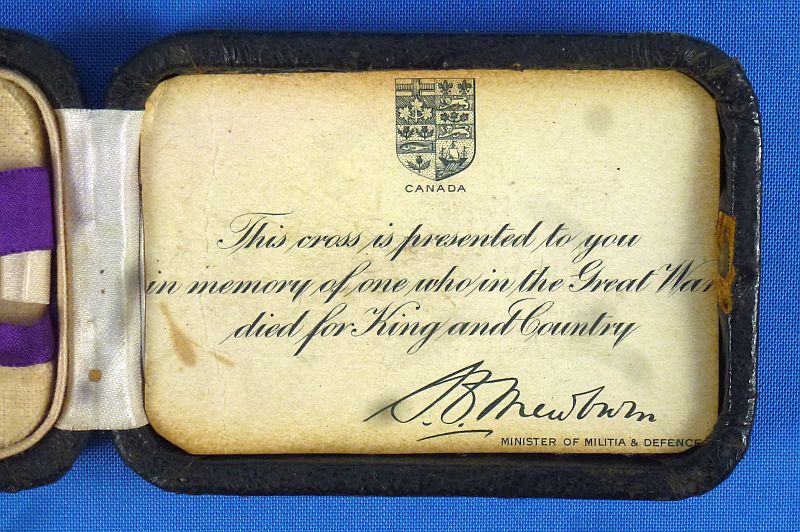 CANADA
This cross is presented to you
in memory of one who in the Great War
died for King and Country
S.C. Mewburn
MINISTER OF MILITIA & DEFENCE